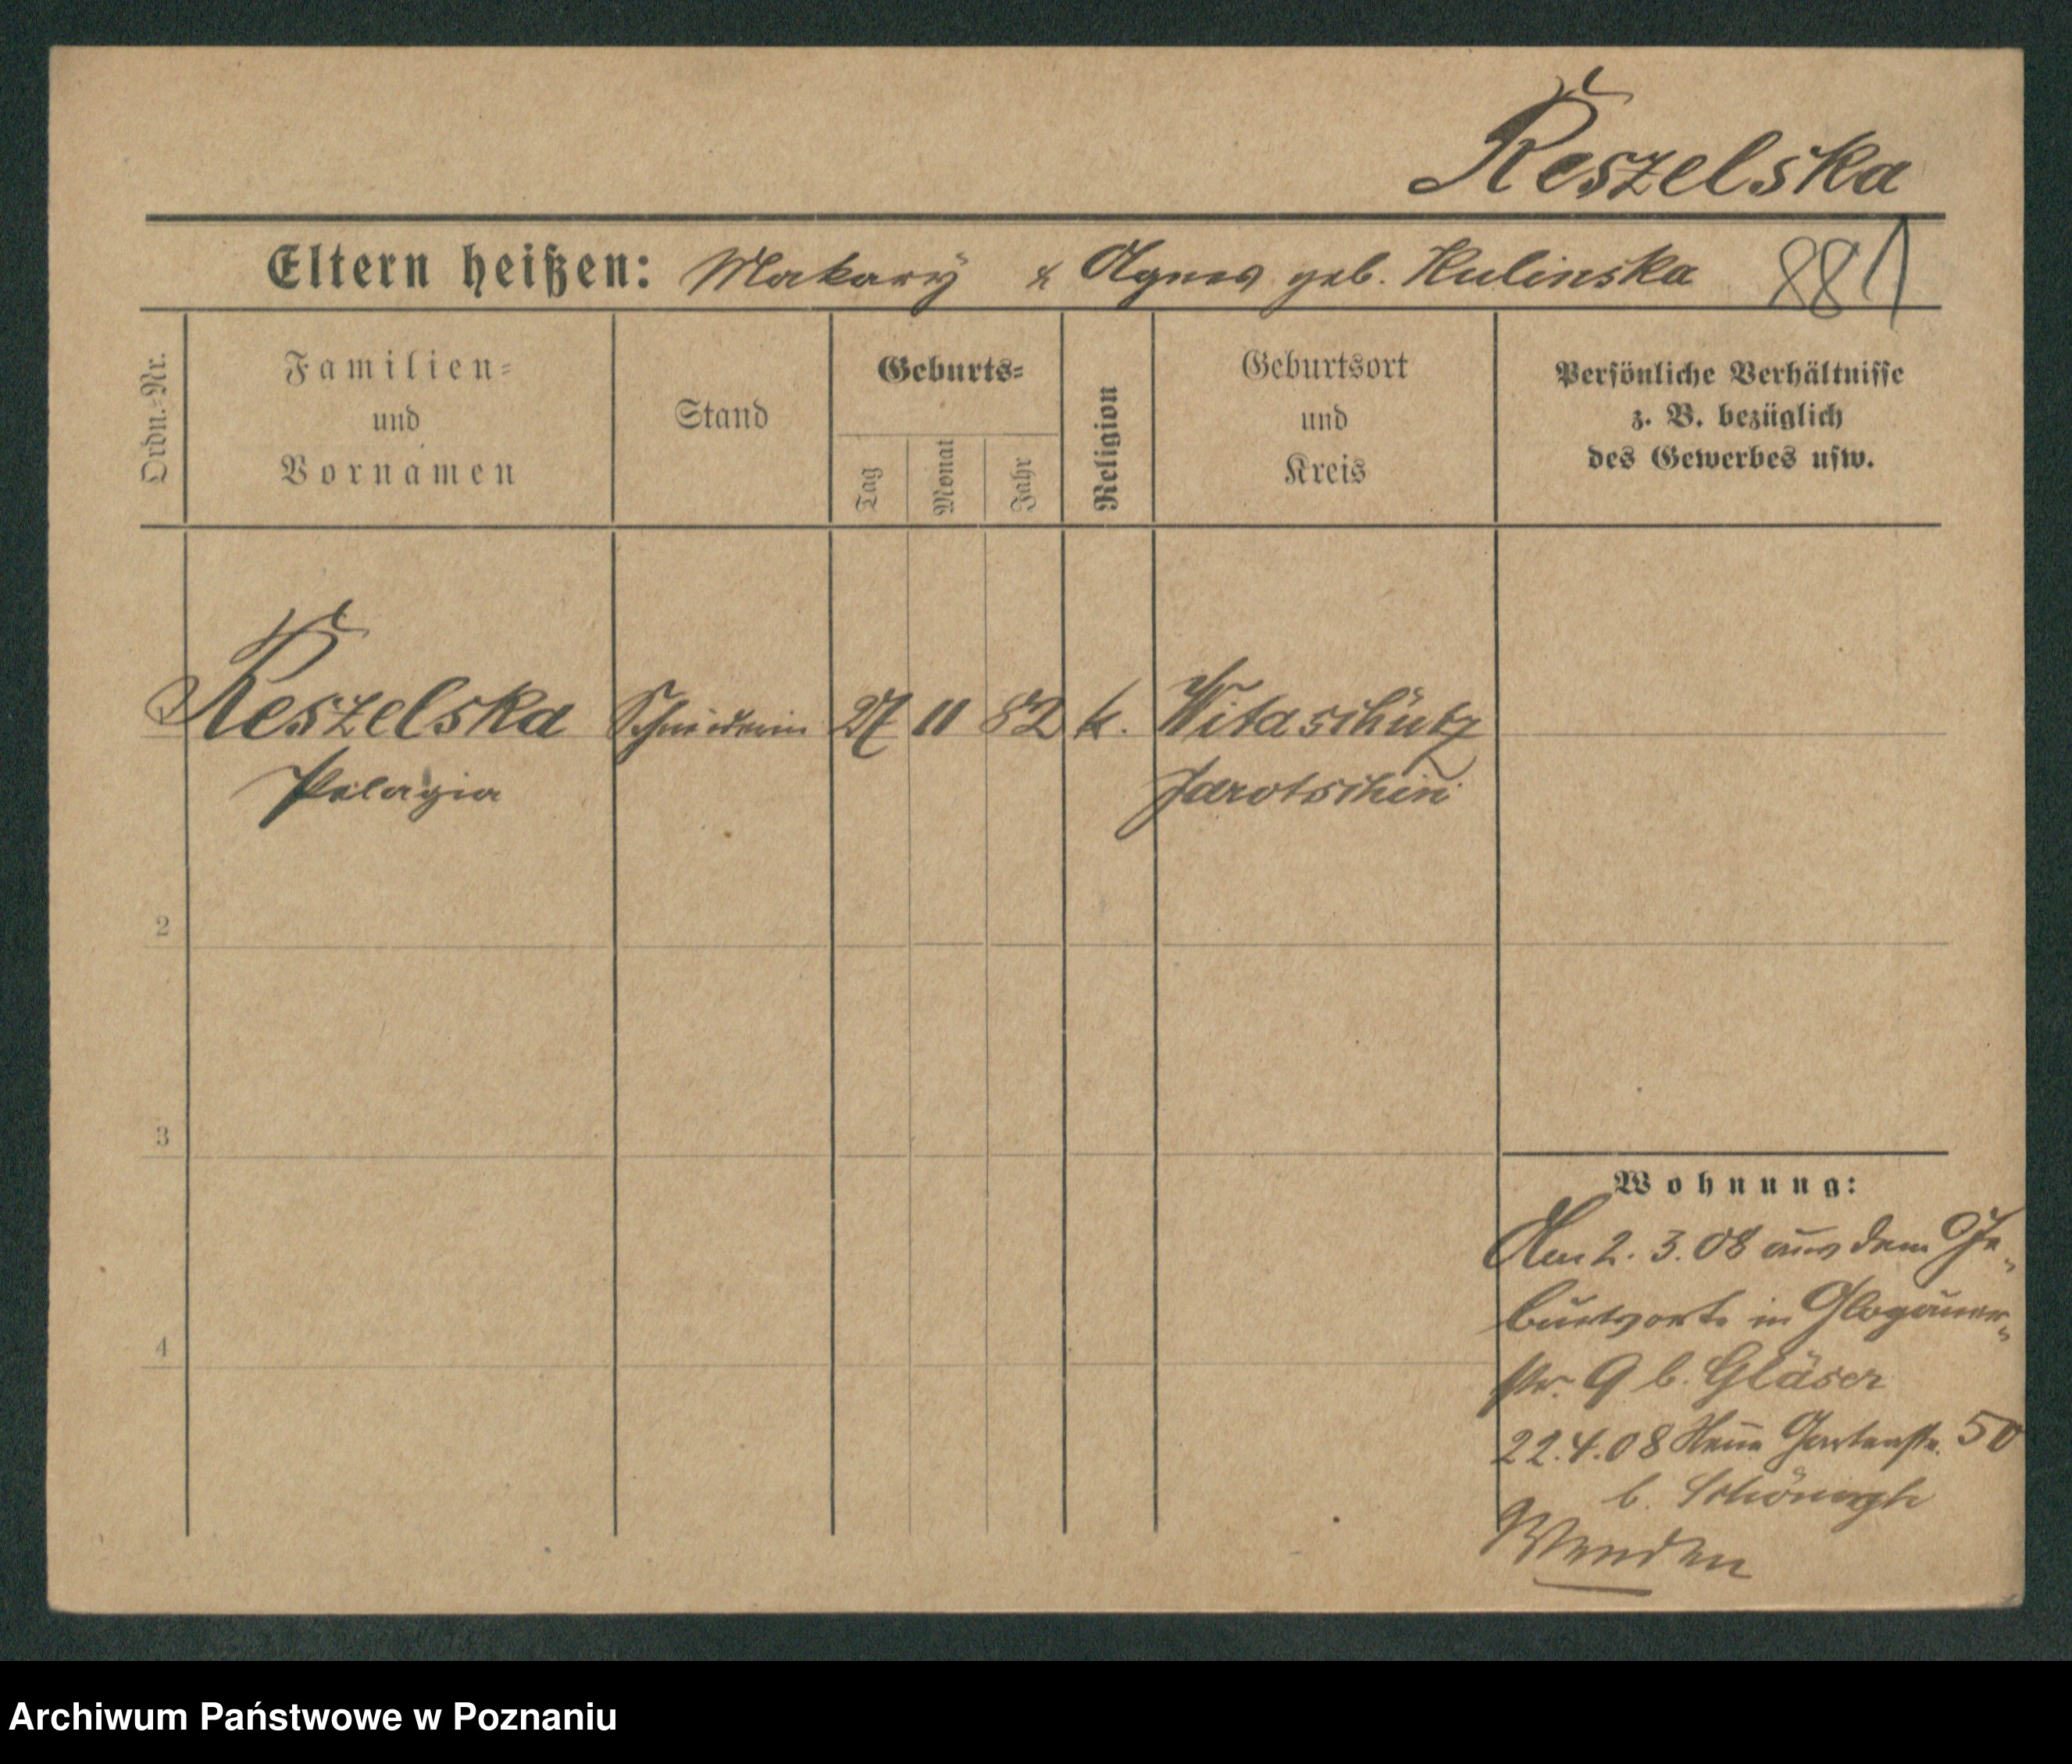 Reszelska
Eltern heißen: Makary & Agnes geb. Kulinska 881
Ordn.-Nr.
Familien-
und
Vornamen
Stand
Geburts-
Tag
Monat
Jahr
Religion
Geburtsort
und
Kreis
Persönliche Verhältnisse
z. B. bezüglich
des Gewerbes usw.
Reszelska Schneiderin 27 11 82 k. Witaschütz
Pelagia Jarotschin
2
3
4
Wohnung:
Am 2. 3. 08 aus dem Ge-
burtsorte in Glogauer-
str. 9 b. Gläser
22.4.08 Neue Gartenstr. 50
b. Schöningh
Wenden
Archiwum Państwowe w Poznaniu